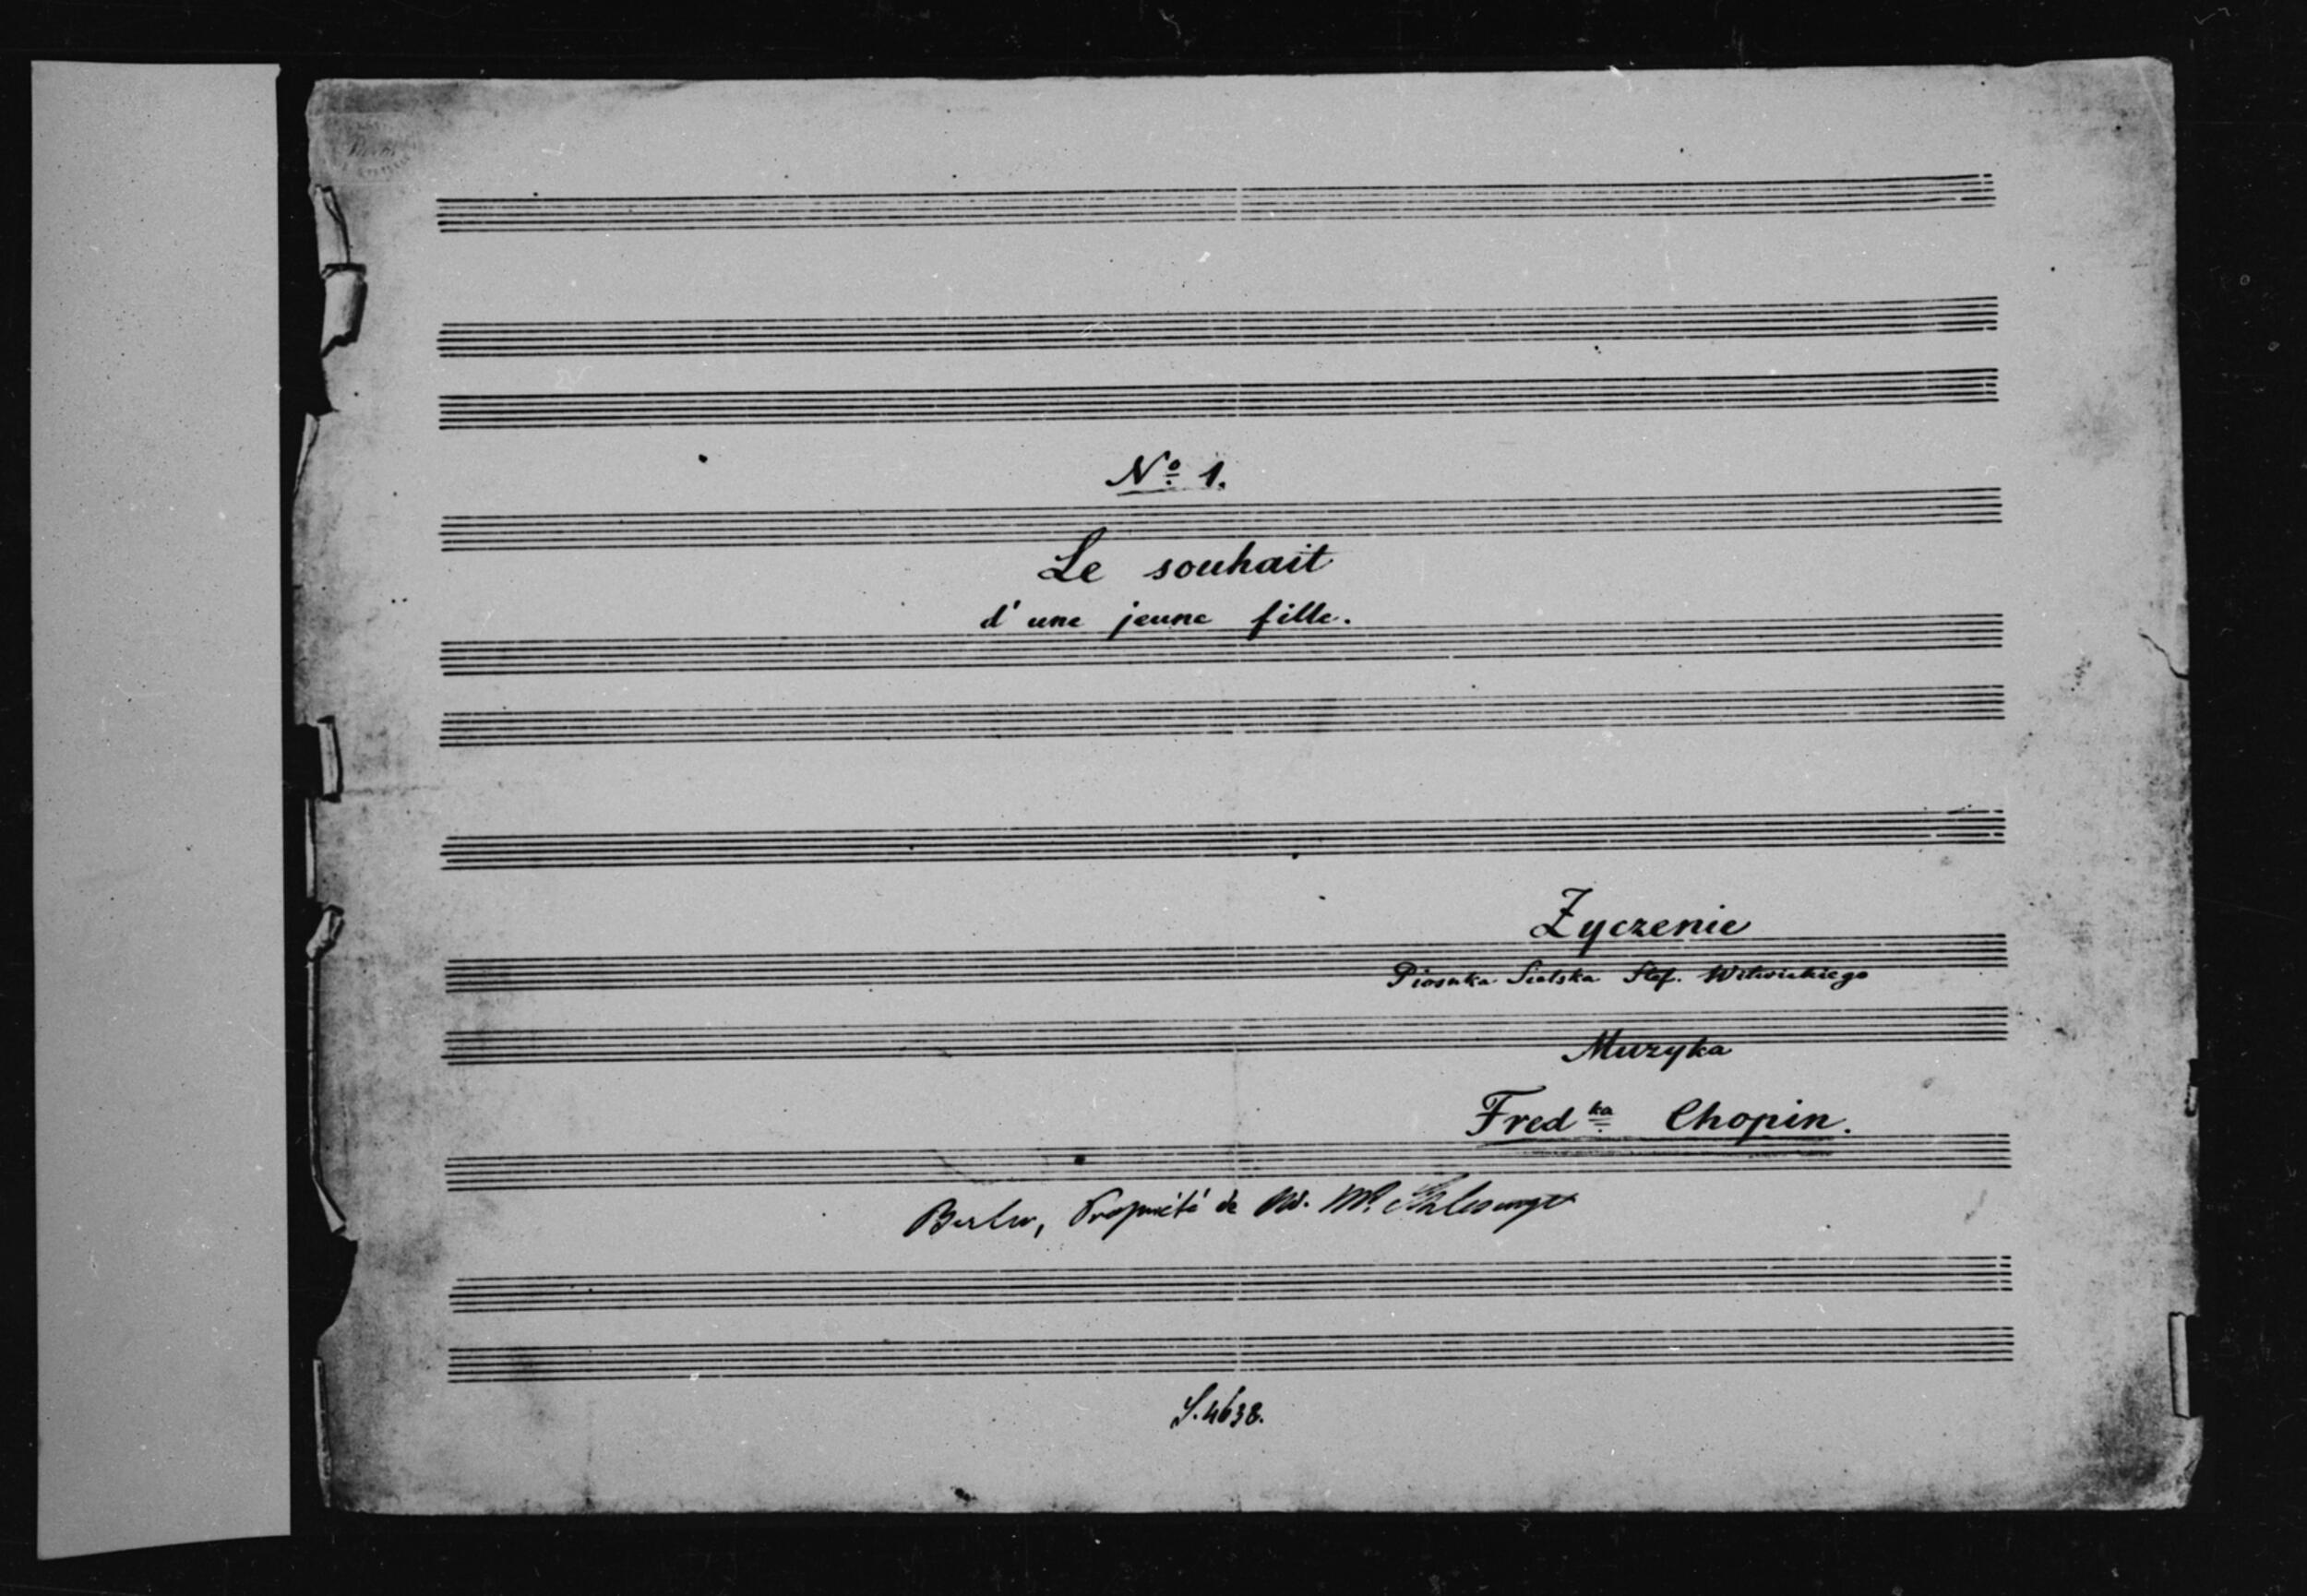 No. 1.
Le souhait
d'une jeune fille.
Życzenie
Piosnka Sielska Stef. Witwickiego
Muzyka
Fredka Chopin.
Berlin, Propriété de Ad. Mt. Schlesinger
S. 4638.